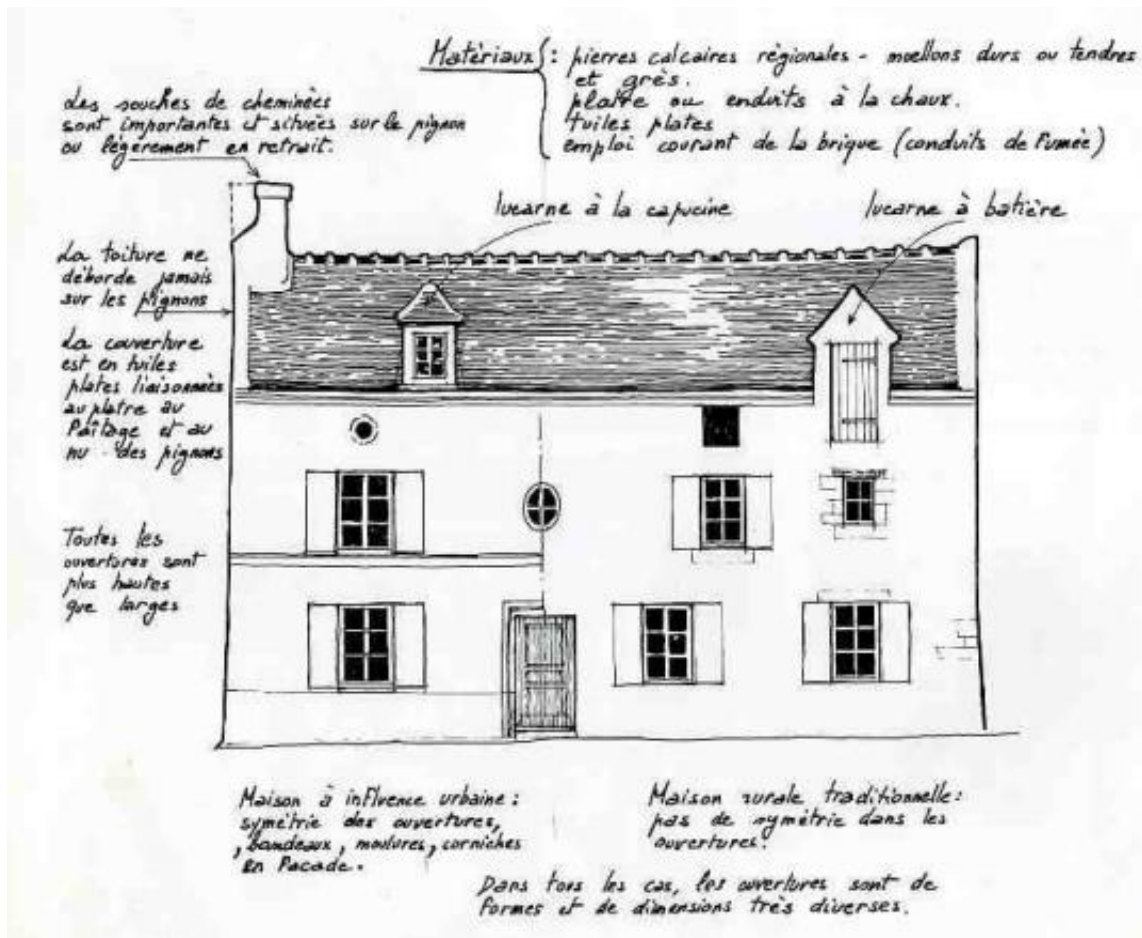 Matériaux : pierres calcaires régionales - moellons durs ou tendres
et grès.
platre ou enduits à la chaux.
tuiles plates
emploi courant de la brique (conduits de fumée)
Les souches de cheminées
sont importantes et situées sur le pignon
ou légèrement en retrait.
lucarne à la capucine
lucarne à batière
La toiture ne
déborde jamais
sur les pignons
La couverture
est en tuiles
plates liaisonnées
au platre au
faîtage et au
nu des pignons
Toutes les
ouvertures sont
plus hautes
que larges
Maison à influence urbaine :
symétrie des ouvertures,
, bandeaux, moulures, corniches
en façade.
Maison rurale traditionnelle :
pas de symétrie dans les
ouvertures.
Dans tous les cas, les ouvertures sont de
formes et de dimensions très diverses.